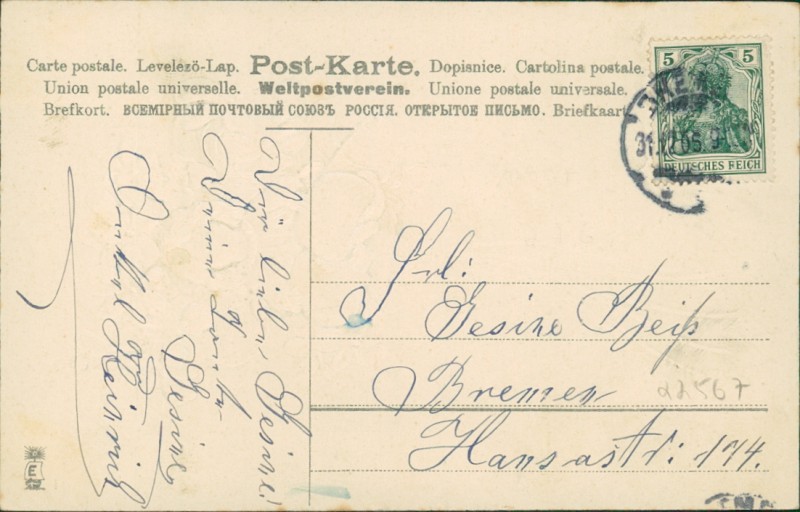 Carte postale. Levelező-Lap. Post-Karte. Dopisnice. Cartolina postale.
Union postale universelle. Weltpostverein. Unione postale universale.
Brefkort. ВСЕМІРНЫЙ ПОЧТОВЫЙ СОЮЗЪ РОССІЯ. ОТКРЫТОЕ ПИСЬМО. Briefkaart
5 5
DEUTSCHES REICH
31.12.05. 9
Frl:
Gesine Beiß
Bremen
Hansastr: 174.
22567
Dir liebe Gesine!
Deine Tante
Gesine
Onkel Heinrich
E